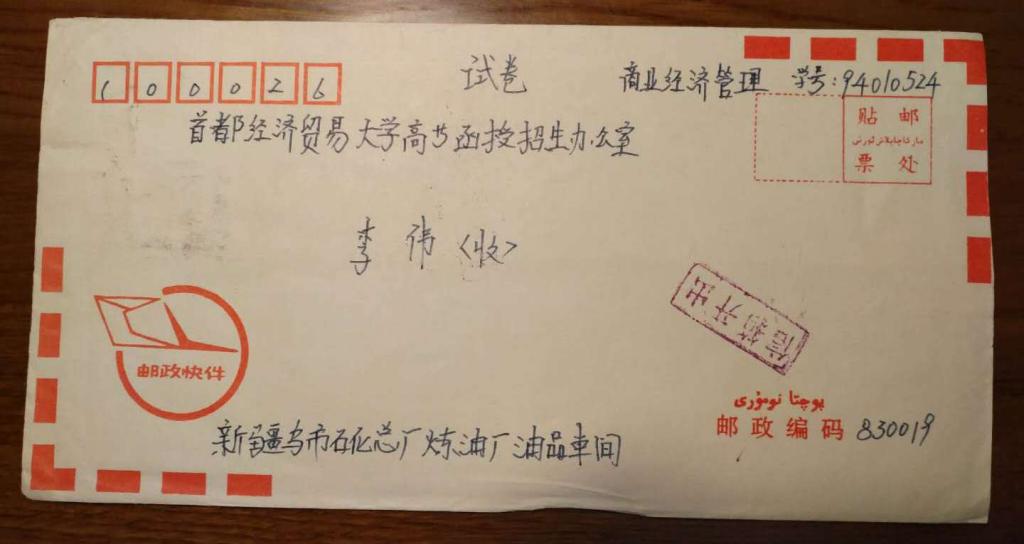 试卷 商业经济管理 学号:94010524
100026
首都经济贸易大学高专函授招生办公室
贴邮
票处
李伟<收>
信箱开出
邮政快件
پوچتا نومۇرى
邮政编码 830019
新疆乌市石化总厂炼油厂油品车间